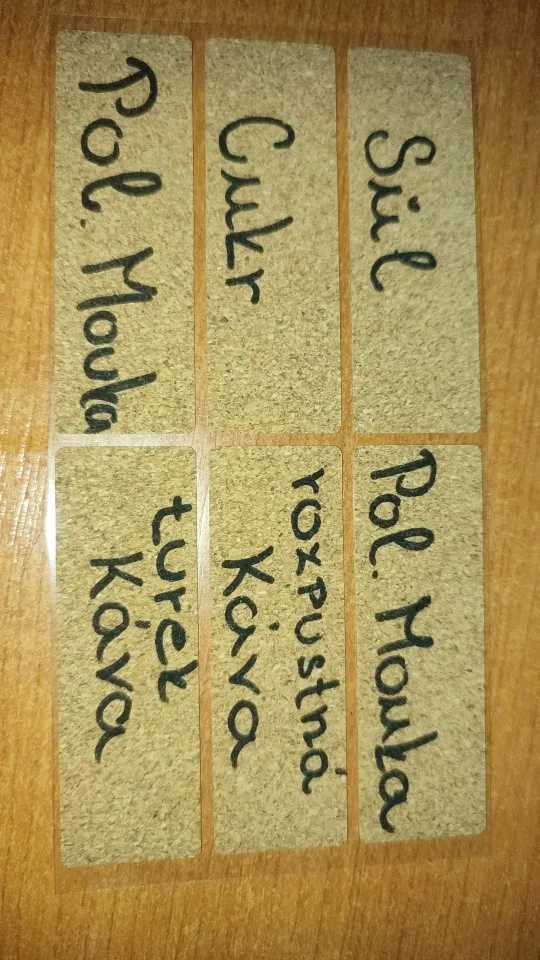 Sůl
Pol. Mouka
Cukr
rozpustná
Káva
Pol. Mouka
turek
Káva